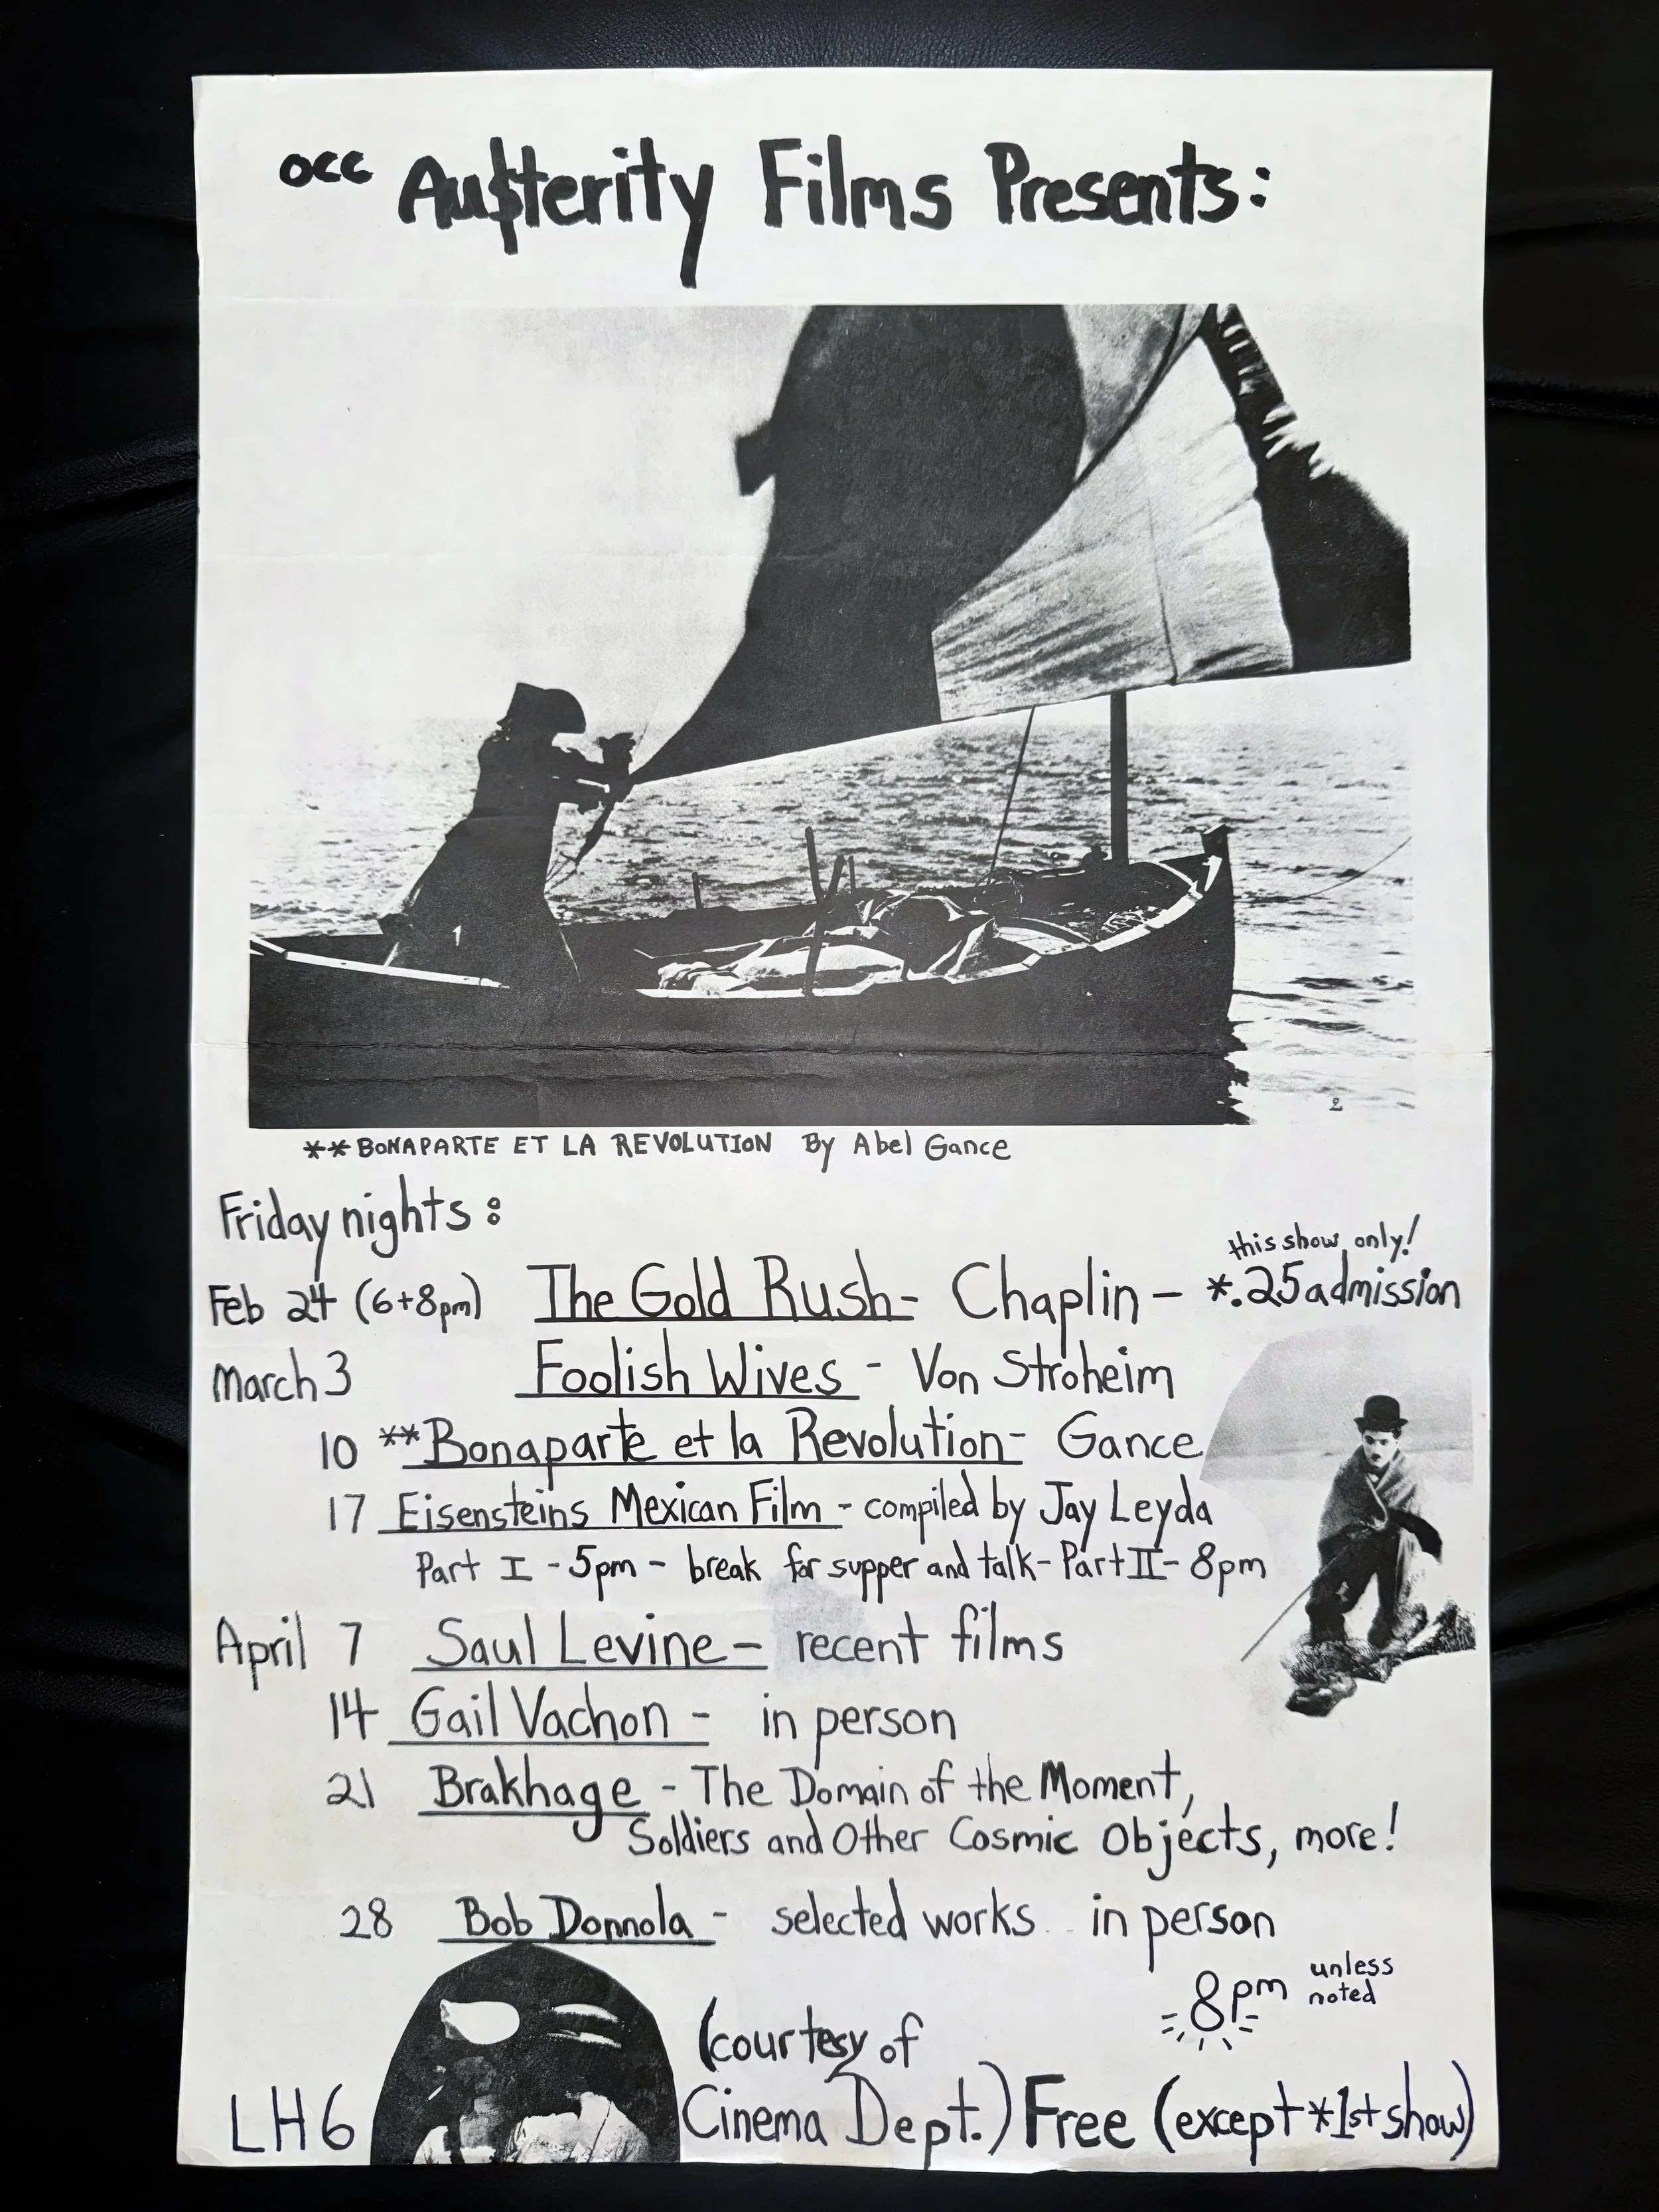 occ Austerity Films Presents:
2
**BONAPARTE ET LA REVOLUTION By Abel Gance
Friday nights:
this show only!
Feb 24 (6+8pm) The Gold Rush - Chaplin - *.25 admission
March 3 Foolish Wives - Von Stroheim
10 **Bonaparte et la Revolution - Gance
17 Eisensteins Mexican Film - compiled by Jay Leyda
Part I - 5pm - break for supper and talk - Part II - 8pm
April 7 Saul Levine - recent films
14 Gail Vachon - in person
21 Brakhage - The Domain of the Moment,
Soldiers and Other Cosmic Objects, more!
28 Bob Donnola - selected works in person
8pm unless
noted
(courtesy of
LH6 Cinema Dept.) Free (except *1st show)